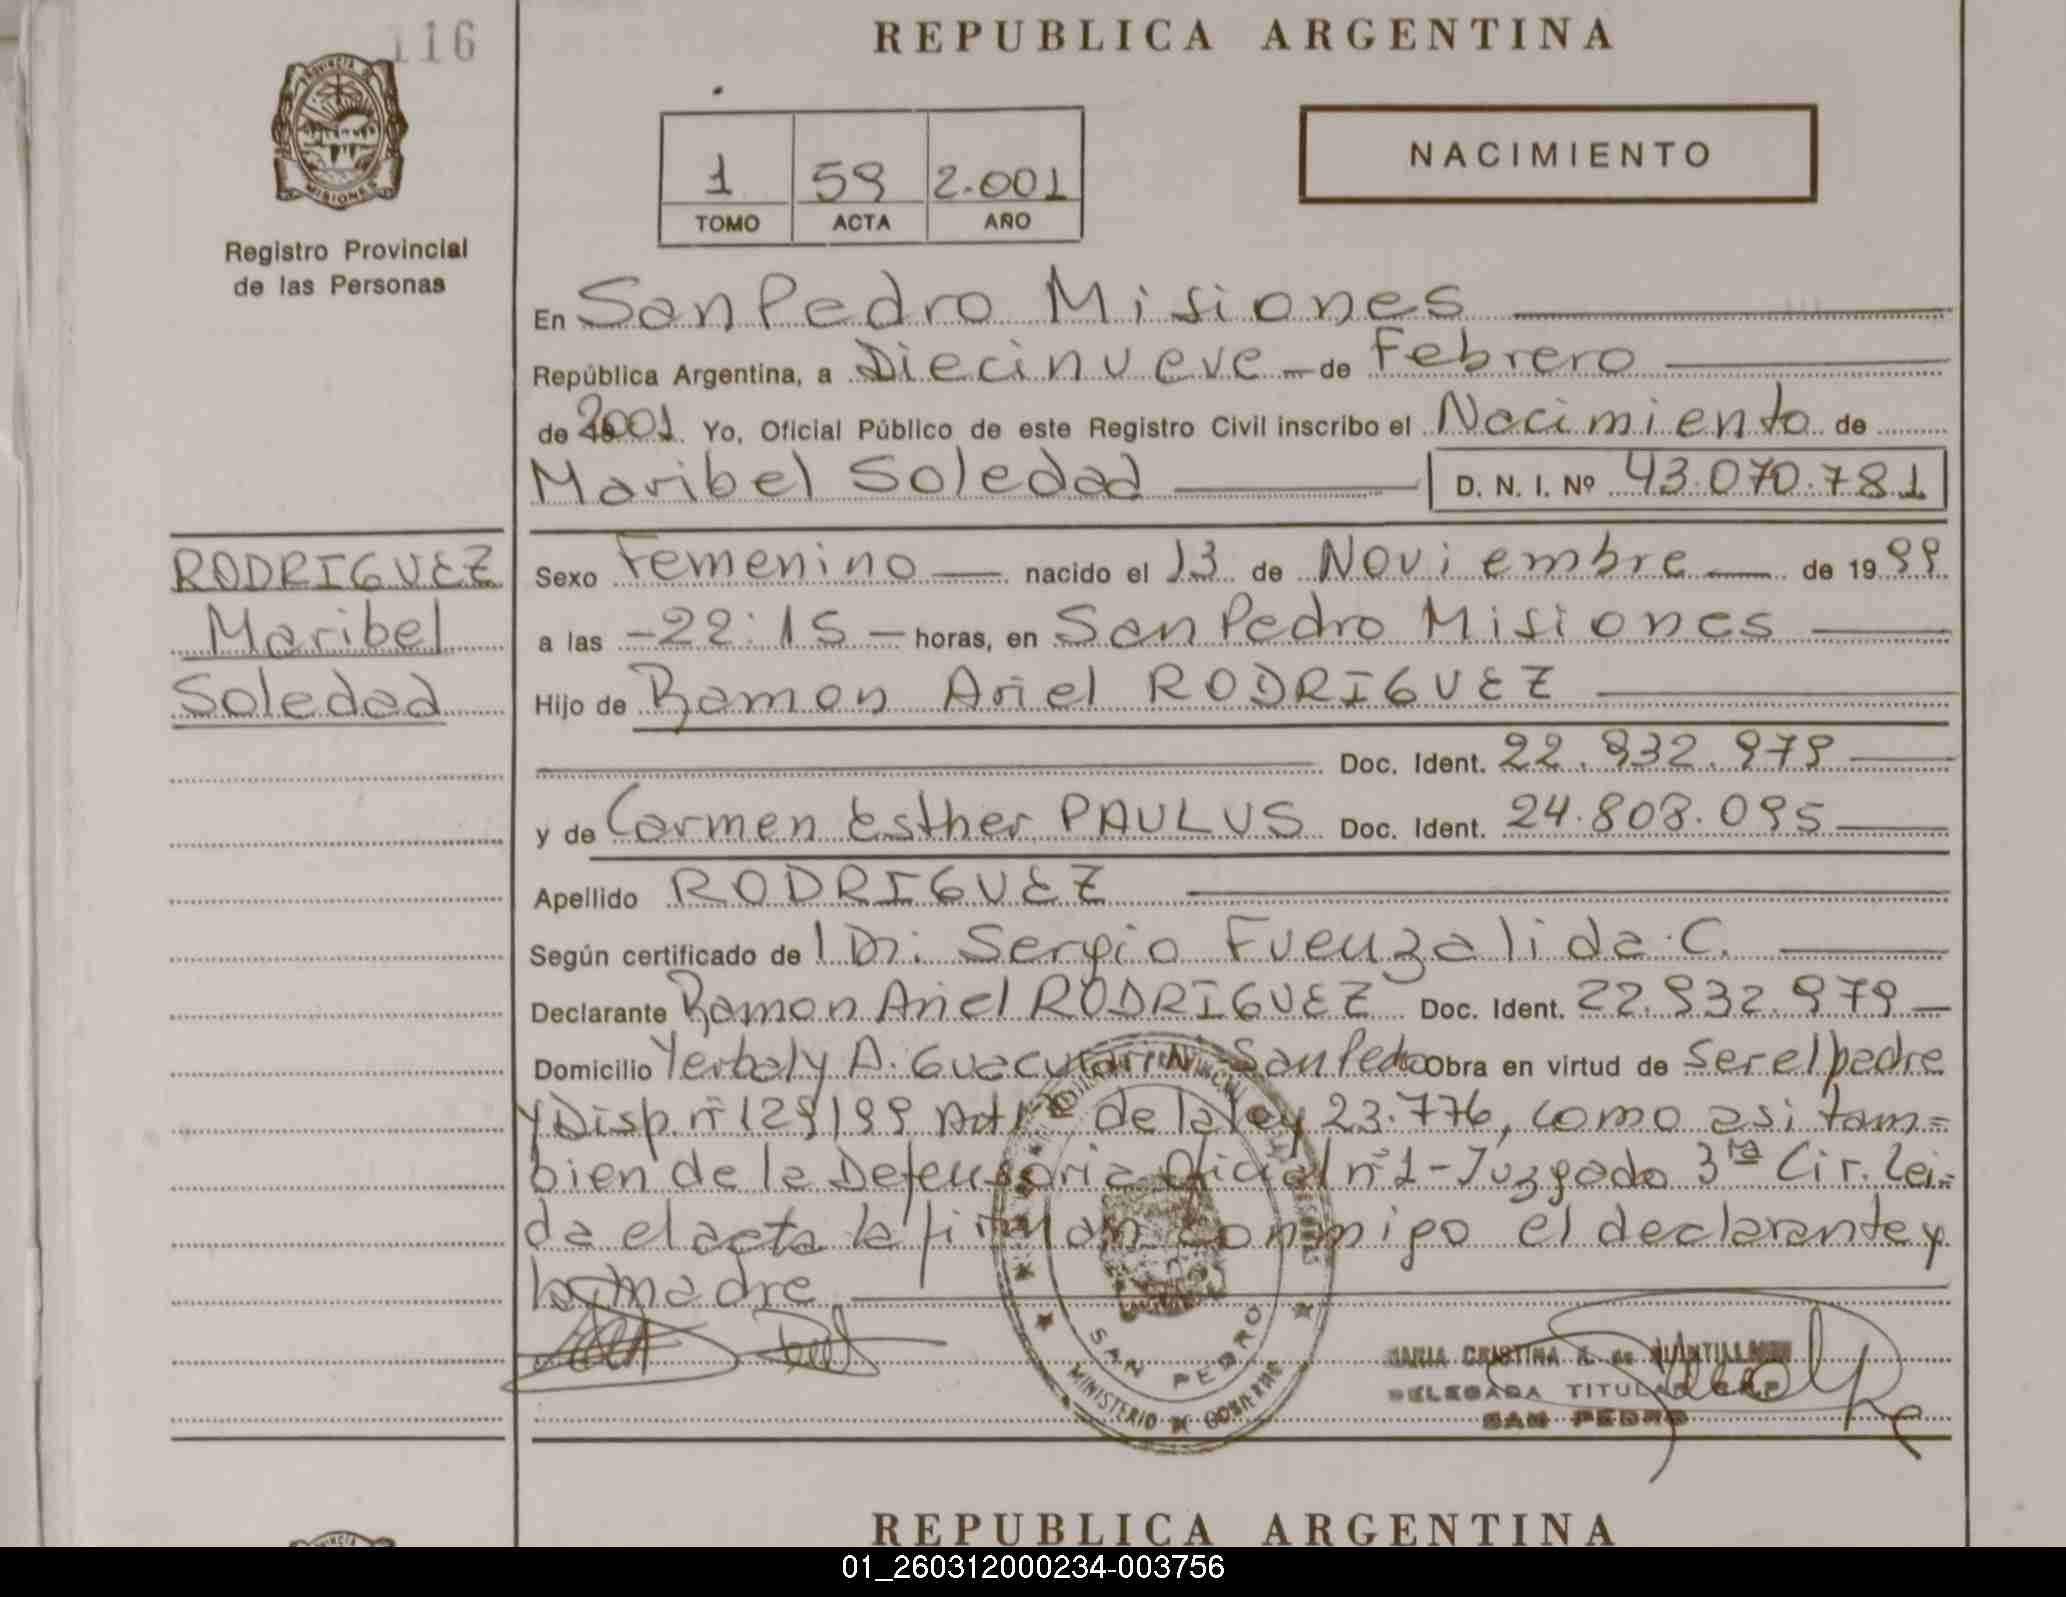 116
REPUBLICA ARGENTINA
PROVINCIA DE
MISIONES
Registro Provincial
de las Personas
1 59 2.001
TOMO ACTA AÑO
NACIMIENTO
En San Pedro Misiones
República Argentina, a Diecinueve de Febrero
de 2001 Yo, Oficial Público de este Registro Civil inscribo el Nacimiento de
Maribel Soledad D. N. I. Nº 43.070.781
RODRIGUEZ
Maribel
Soledad
Sexo Femenino nacido el 13 de Noviembre de 1999
a las -22:15- horas, en San Pedro Misiones
Hijo de Ramon Ariel RODRIGUEZ
Doc. Ident. 22.932.979
y de Carmen Esther PAULUS Doc. Ident. 24.808.095
Apellido RODRIGUEZ
Según certificado de l Dr. Sergio Fuenzalida C.
Declarante Ramon Ariel RODRIGUEZ Doc. Ident. 22.932.979
Domicilio Yerbal y A. Guacurari San Pedro Obra en virtud de Ser el padre
y Disp. nº 129/99 Art 1º de la ley 23.776, como asi tam=
bien de la Defensoria Oficial nº 1 - Juzgado 3ra Cir. Lei=
da el acta la firman conmigo el declarante y
la madre
SAN PEDRO
MINISTERIO DE GOBIERNO
MARIA CRISTINA
DELEGADA TITULAR
SAN PEDRO
REPUBLICA ARGENTINA
01_260312000234-003756